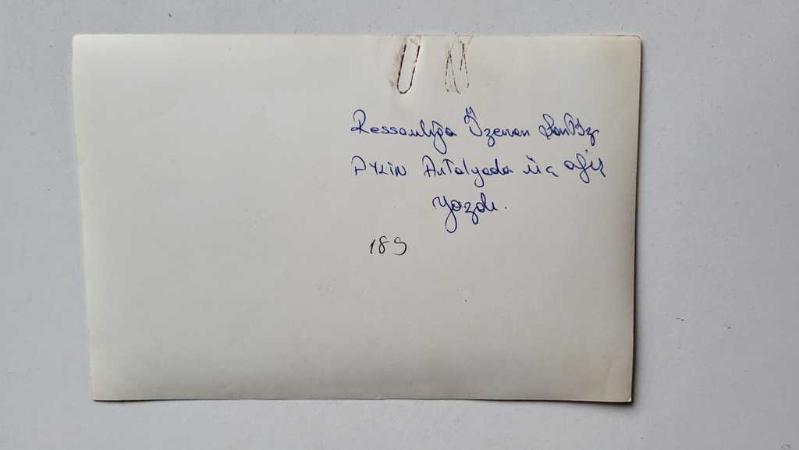 Ressamlığa Özenen
AYLİN Antalyada üç afiş
yazdı.
189